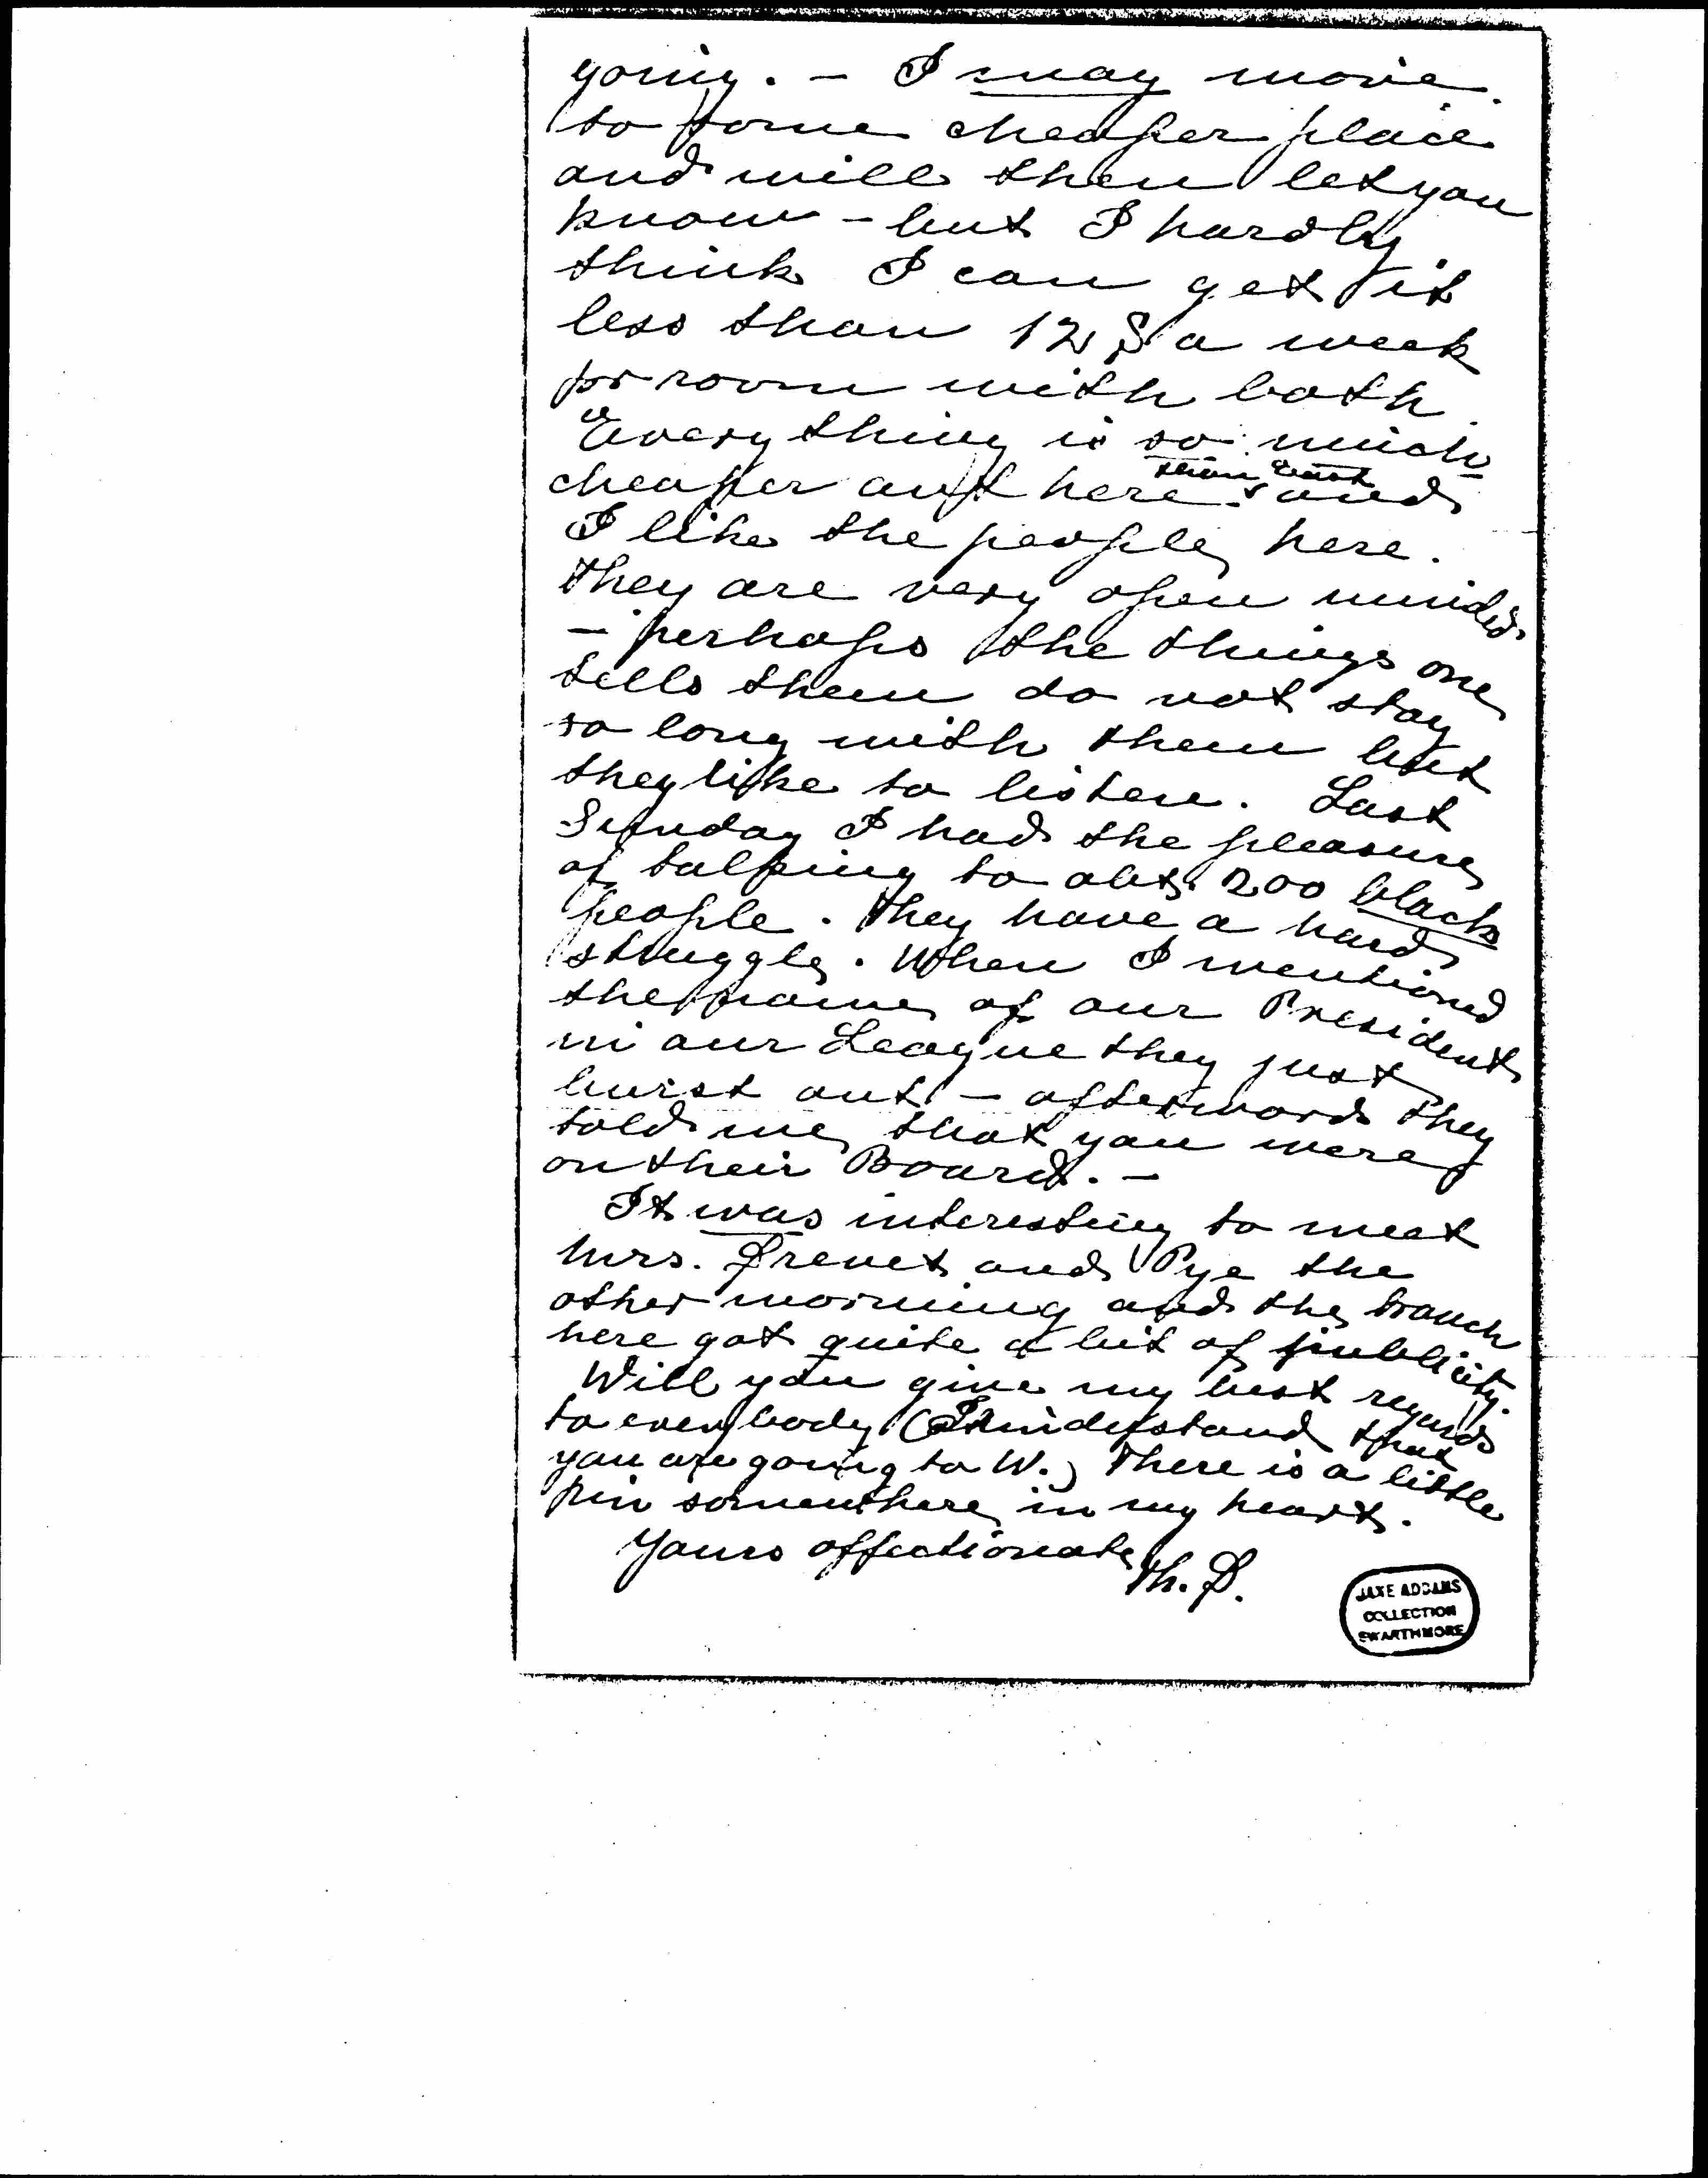 going. – I may move
to some cheaper place
and will then let you
know – but I hardly
think I can get it
less than 12 $ a week
for room with bath.
Everything is so much
cheaper out here than East and
I like the people here.
They are very open minded
– perhaps the things one
tells them do not stay
so long with them but
they like to listen. Last
Sunday I had the pleasure
of talking to abt 200 black
people. They have a hard
struggle. When I mentioned
the name of our President
in our League they just
burst out – afterwards they
told me that you were
on their Board. –
It was interesting to meet
Mrs. and Pye the
other morning and the branch
here got quite a bit of publicity.
Will you give my best regards
to everybody (I understand that
you are going to W.) There is a little
pin somewhere in my heart.
Yours affectionate
Th. D.
JANE ADDAMS
COLLECTION
SWARTHMORE